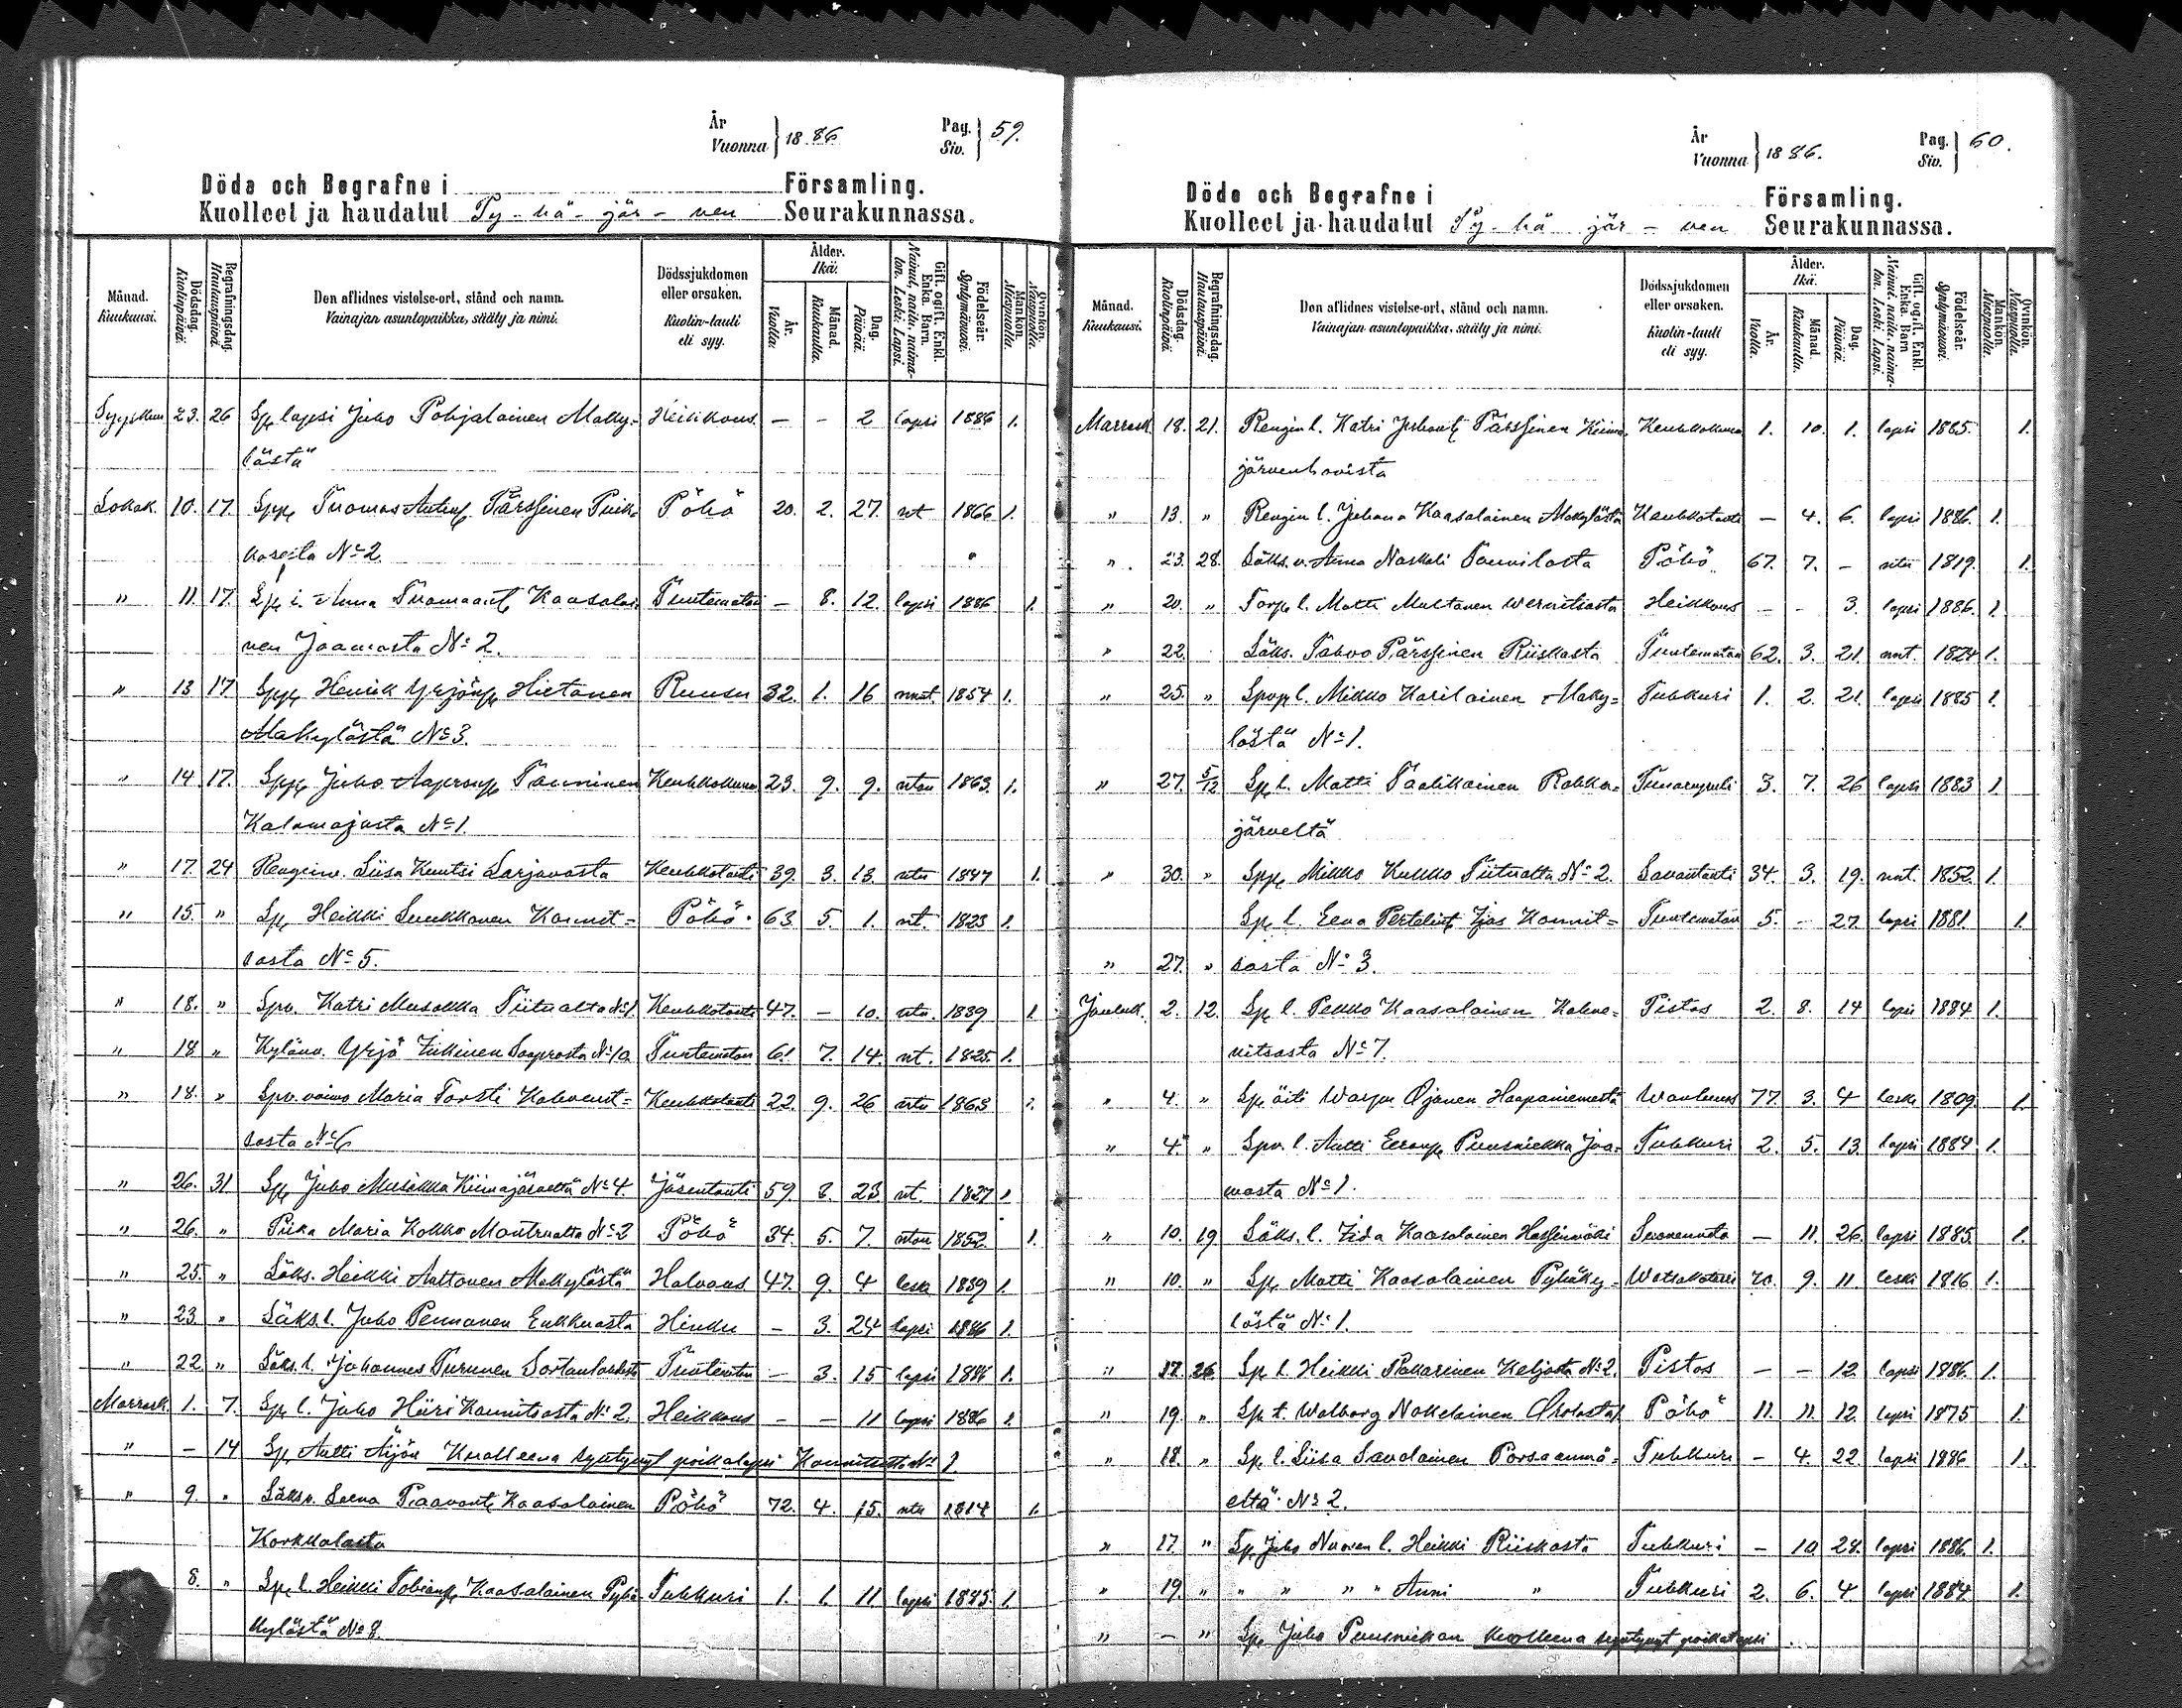 År
Vuonna } 1886
Pag.
Siv. } 59.
Döda och Begrafne i Församling.
Kuolleet ja haudatut Py-hä-jär-ven Seurakunnassa.
Månad. Kuukausi.
Dödsdag. Kuolinpäivä.
Begrafningsdag. Hautauspäivä.
Den aflidnes vistelse-ort, stånd och namn. Vainajan asuntopaikka, sääty ja nimi.
Dödssjukdomen eller orsaken. Kuolin-tauti eli syy.
Ålder. Ikä.
År. Vuotta.
Månad. Kuukautta.
Dag. Päivää.
Gift. ogift. Enkl. Enka. Barn. Nainut, naim. naimaton. Leski. Lapsi.
Födelseår. Syntymävuosi.
Mankön. Miespuolta.
Qvinkön. Naispuolta.
Syyskuu 23. 26 Sp. lapsi Juho Pohjalainen Maky- Heikkous. – – 2 lapsi 1886 1.
lästä
Lokak. 10. 17. Spp. Tuomas Antinp. Pärssinen Pöhö 20. 2. 27. nt 1866 1.
No 2
" 11. 17. Anna Tuomaant. Kaasalai- Tuntematon – 8. 12. lapsi 1886 1.
nen Jaamasta No 2.
" 13 17 Spp. Henrik Yrjönp. Hietanen Ruusu 32. 1. 16 nmt. 1854 1.
Makylästä No 3.
" 14 17. Spp. Juho Aapronp. Keuhkokuume 23. 9. 9. nton 1863. 1.
Kalamajasta No 1.
" 17. 24 Renginv. Liisa Kuntsi Larjavasta Keuhkotauti 39. 3. 13. ntu 1847 1.
" 15. " Sp. Heikki Suukkonen Konnit- Pöhö. 63. 5. 1. nt. 1823 1.
sasta No 5.
" 18. " Spv. Katri Musakka Tiitualta No 1 Keuhkotauti 47. – 10. ntu. 1839 1.
" 18 " Yrjö Tuntematon 61. 7. 14. nt. 1825. 1.
" 18. " Spv. vaimo Maria Torsti Kahvenit- Keuhkotauti 22. 9. 26 ntu 1863
sasta No 6
" 26. 31. Sp. Juho Musakka Kiimajärveltä No 4. Jäsentauti 59. 8. 23 nt. 1827 1.
" 26. " Piika Maria Kokko Montrualta No 2 Pöhö 34. 5. 7. nton 1852. 1.
" 25. " Säks. Heikki Aattonen Makylästä Halvaus 47. 9. 4 leski 1839 1.
" 23. " Säks. l. Juho Pennanen Enkkuasta Hinku – 3. 24 lapsi 1886 1.
" 22. " Säks. l. Johannes Turunen Tuntematon – 3. 15 lapsi 1886 1.
Marrask. 1. 7. Sp. l. Juho Hiiri Konnitsasta No 2. Heikkous – – 11 lapsi 1886 1.
" – 14 Sp. Antti Äijön Kuolleena syntynyt poikalapsi
" 9. " Säksv. Leena Paavont. Kaasalainen Pöhö 72. 4. 15. ntu 1814 1.
Korkkalasta
8. " Sp. l. Heikki Tobiasp. Kaasalainen Pyhä- Tuhkuri 1. 1. 11. lapsi 1885. 1.
kylästä No 8.
År
Vuonna } 1886.
Pag.
Siv. } 60.
Döde och Begrafne i Församling.
Kuolleet ja haudatut Py-hä jär-ven Seurakunnassa.
Månad. Kuukausi.
Dödsdag. Kuolinpäivä.
Begrafningsdag. Hautauspäivä.
Den aflidnes vistelse-ort, stånd och namn. Vainajan asuntopaikka, sääty ja nimi.
Dödssjukdomen eller orsaken. Kuolin-tauti eli syy.
Ålder. Ikä.
År. Vuotta.
Månad. Kuukautta.
Dag. Päivää.
Gift. ogift. Enkl. Enka. Barn Nainut, naim. naimaton. Leski. Lapsi.
Födelseår. Syntymävuosi.
Mankön. Miespuolta.
Qvinkön. Naispuolta.
Marrask. 18. 21. Rengin l. Katri Juhont. Pärssinen Kiima- Keuhkokuume 1. 10. 1. lapsi 1885. 1.
järvenhovista
" 13. " Rengin l. Juhana Kaasalainen Makylästä Keuhkotauti – 4. 6. lapsi 1886. 1.
" 23. 28. Säks. v. Anna Naskali Taunilasta Pöhö 67. 7. – ntu 1819. 1.
" 20. " Torp. l. Matti Multanen Wernitsasta Heikkous – – 3. lapsi 1886. 1.
" 22. Säks. Tahvo Pärssinen Riiskasta Tuntematon 62. 3. 21. nmt. 1824 1.
" 25. " l. Mikko Karilainen Maky- Tuhkuri 1. 2. 21. lapsi 1885 1.
löstä No 1.
" 27. 5/12 Sp. l. Matti Paalikainen Rahka- 3. 7. 26 lapsi 1883 1.
järveltä
" 30. " Spp. Mikko Kukko Tiitualta No 2. Lavantauti 34. 3. 19. nmt. 1852. 1.
Sp. l. Eeva Pertelint. Ijas Konnit- Tuntematon 5. – 27. lapsi 1881. 1.
" 27. " sasta No 3.
Jouluk. 2. 12. Sp. l. Pekko Kaasalainen Kahve- Pistos 2. 8. 14 lapsi 1884 1.
nitsasta No 7.
" 4. " Sp. äiti Warpu Ojanen Haapaniemestä Wanhuus 77. 3. 4 leski 1809. 1.
" 4. " Spv. l. Antti Eeronp. Puusniekka Jaa- Tuhkuri 2. 5. 13. lapsi 1884 1.
masta No 1.
" 10. 19. Säks. l. Iida Kaasalainen Hassinmäki – 11. 26. lapsi 1885. 1.
" 10. " Sp. Matti Kaasalainen Pyhäky- Watsatauti 70. 9. 11. leski 1816 1.
löstä No 1.
" 17. 26. Sp. l. Heikki Pakarinen Keljasta No 2. Pistos – – 12. lapsi 1886. 1.
" 19. " Sp. t. Walborg Nokelainen Pöhö 11. 11. 12. lapsi 1875 1.
" 18. " Sp. l. Liisa Savolainen Porsaanmä- Tuhkuri – 4. 22. lapsi 1886 1.
eltä No 2.
" 17. " Sp. Juho Nuoran l. Heikki Riiskasta Tuhkuri – 10 28. lapsi 1886. 1.
" 19. " " " " " Anni " Tuhkuri 2. 6. 4. lapsi 1884. 1.
" – " Sp. Juho Puusniekan kuolleena syntynyt poikalapsi